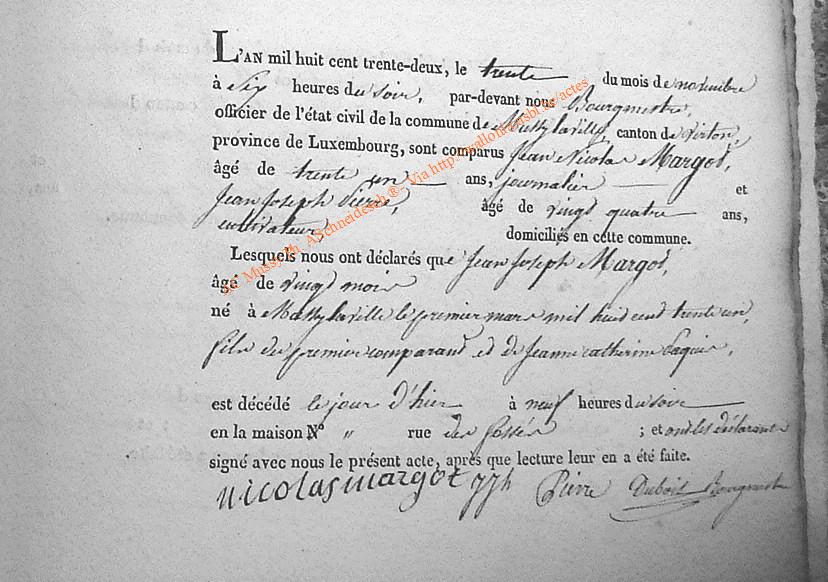 L'AN mil huit cent trente-deux, le trente du mois de novembre
à six heures du soir, par-devant nous Bourgmestre,
officier de l'état civil de la commune de Mussylaville, canton de virton,
province de Luxembourg, sont comparus Jean Nicolas Margot,
âgé de trente un ans, journalier et
Jean Joseph Pierre, âgé de vingt quatre ans,
cultivateur, domiciliés en cette commune.
Lesquels nous ont déclarés que Jean Joseph Margot,
âgé de vingt mois
né à Mussylaville le premier mars mil huit cent trente un,
fils du premier comparant et de Jeanne catherine Paquis,
est décédé le jour d'hier à neuf heures du soir
en la maison N° " rue des fossés ; et ont les déclarants
signé avec nous le présent acte, après que lecture leur en a été faite.
Nicolas margot jjh Pierre Dubois Bourgmestre
Mussy Ph. ASchneidesch ®- Via http://wallonia.asbl.be/actes